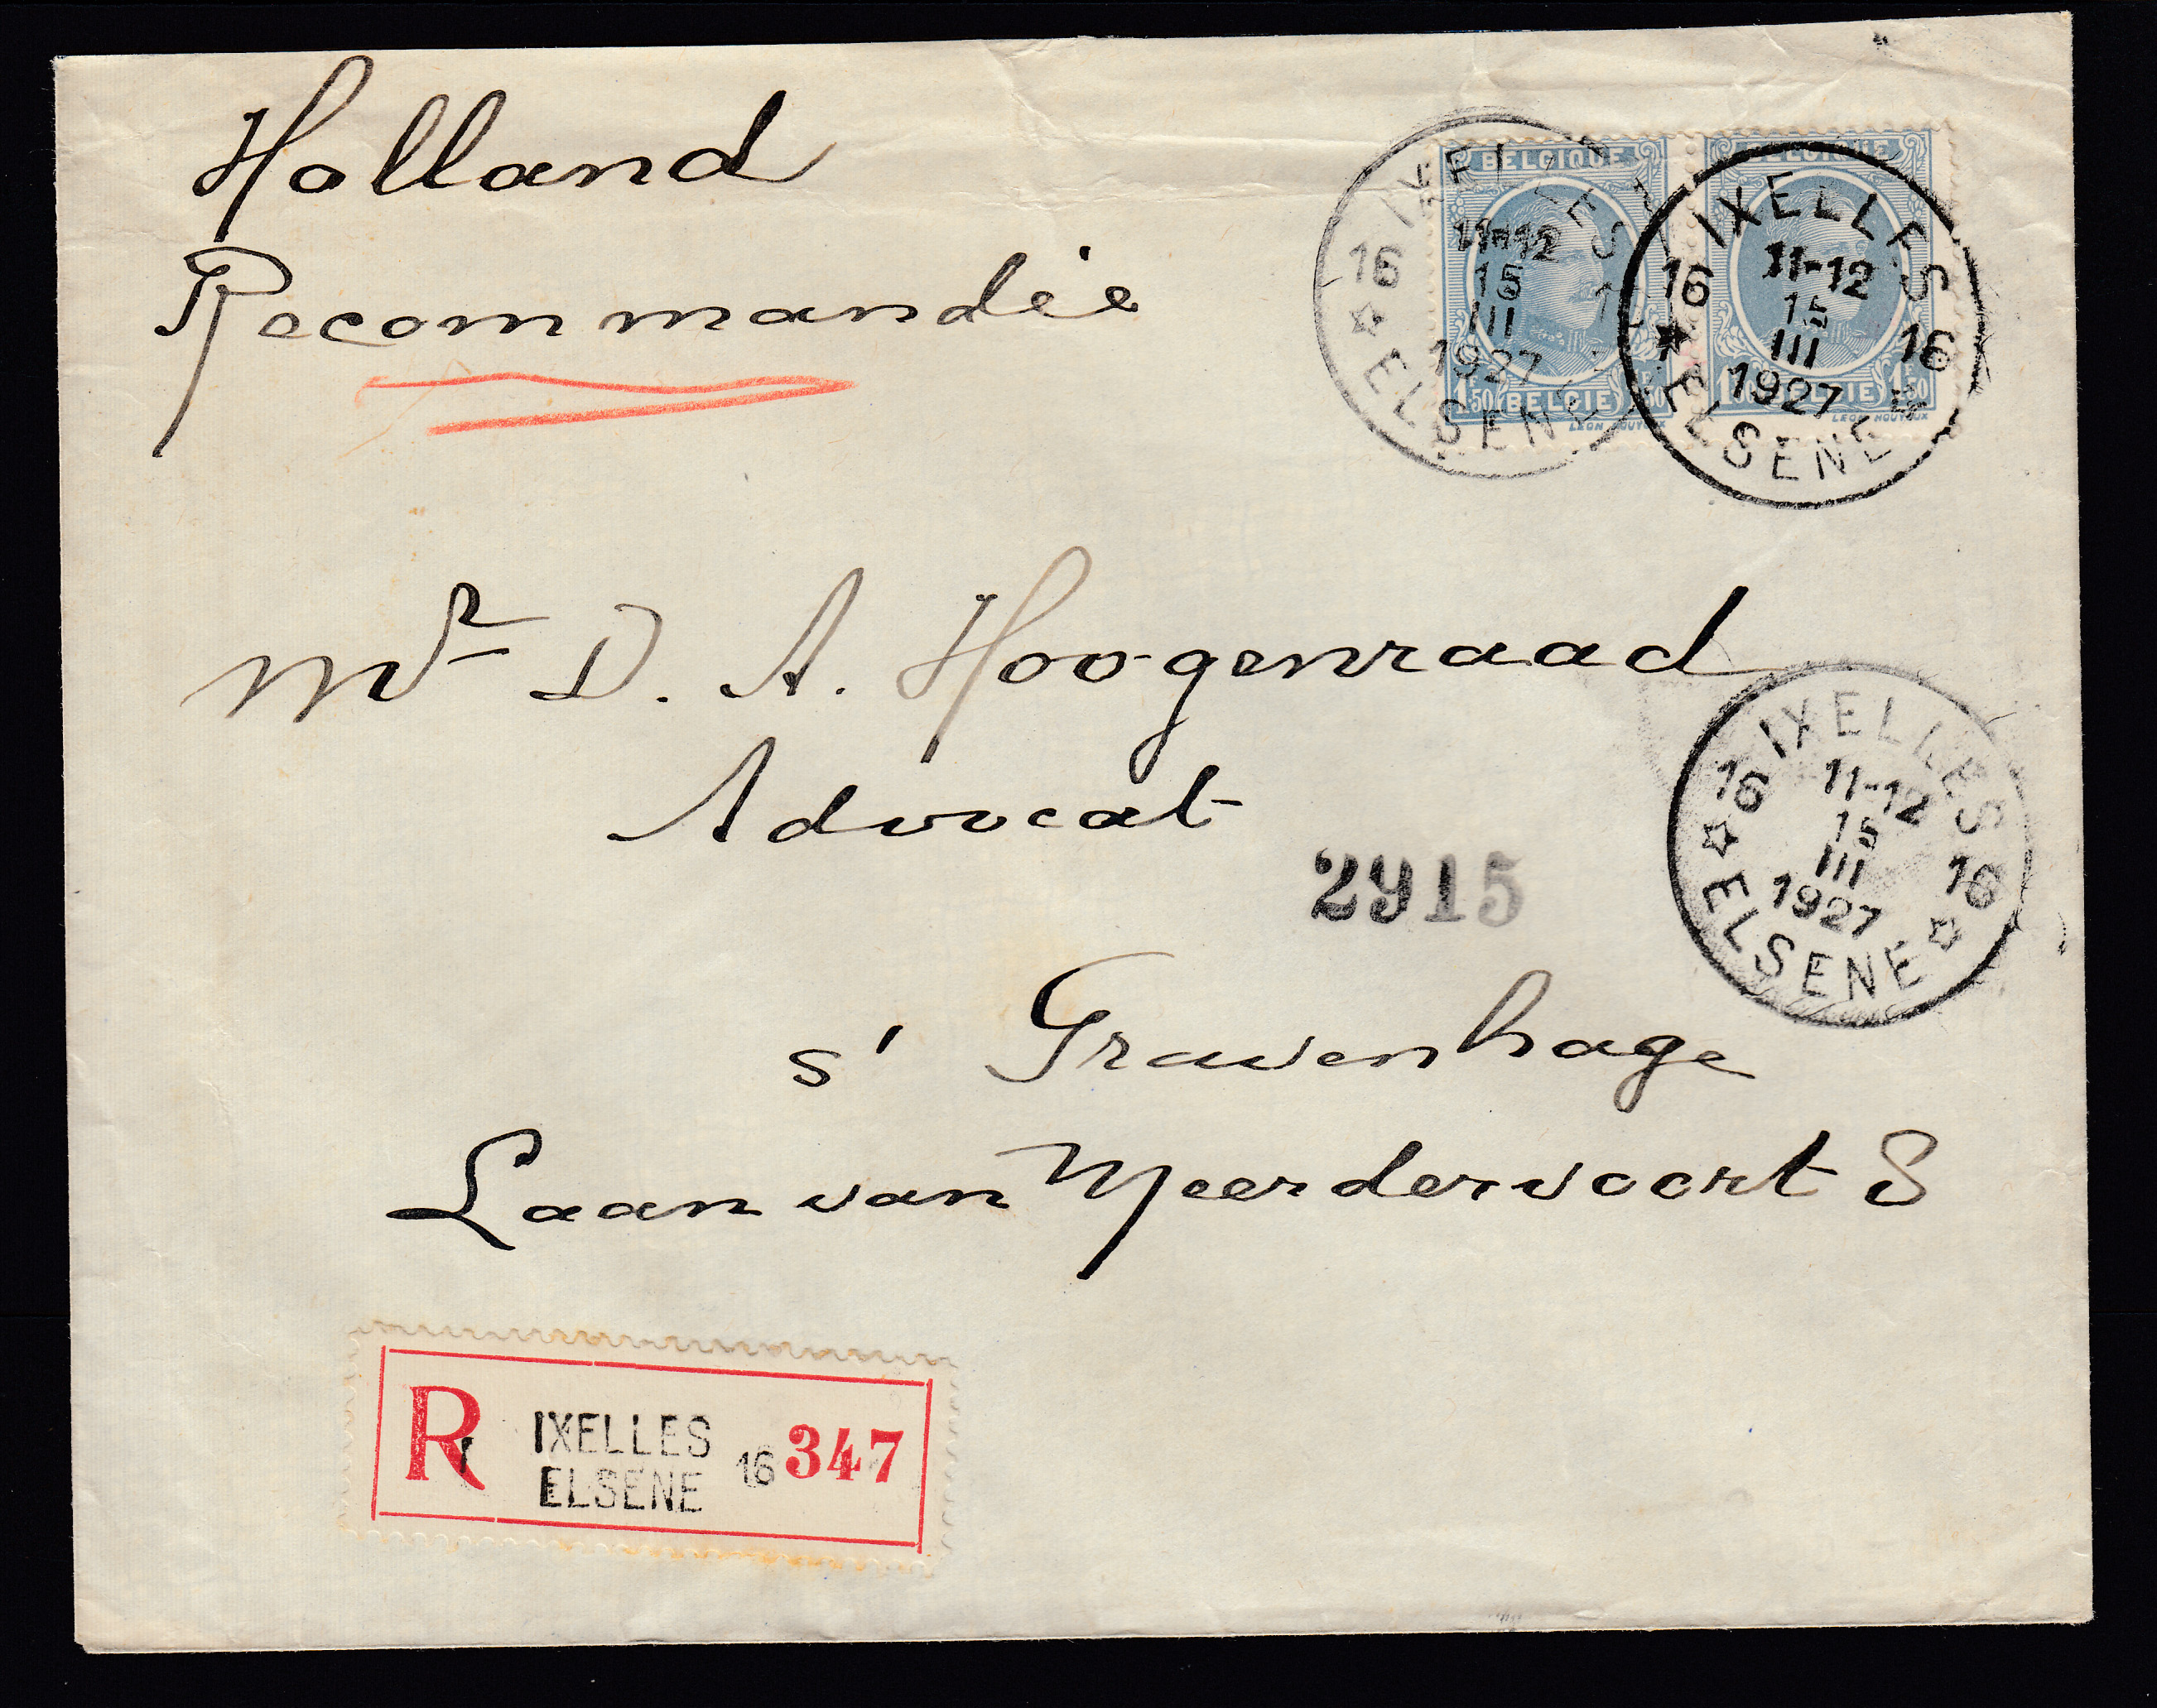 Holland
Recommandée
BELGIQUE
1F50 BELGIE 1F50
LEON HOUYOUX
BELGIQUE
BELGIE 1F50
LEON HOUYOUX
IXELLES
16 11-12
15
III
1927
ELSENE
IXELLES
16 11-12 16
15
III
1927
ELSENE
Mr D. A. Hoogenraad
Advocat
IXELLES
16 11-12 16
15
III
1927
ELSENE
2915
s' Gravenhage
Laan van Meerdervoort 8
R IXELLES
ELSENE 16 347